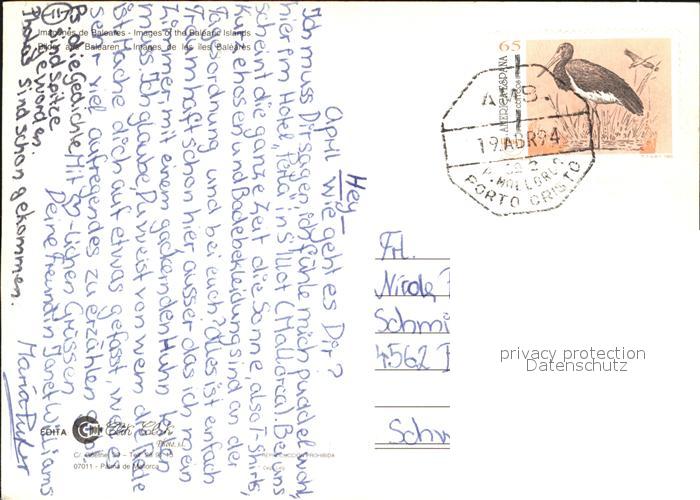 Hey—
April wie geht es Dir?
Ich muss Dir sagen, ich fühle mich puddelwohl,
hier im Hotel "Peña" in S'Illot (Mallorca). Bei uns
scheint die ganze Zeit die Sonne, also T-Shirts,
kurze Hosen und Badebekleidung sind an der
Tagesordnung und bei euch? Alles ist einfach
Traumhaft schön hier ausser das ich mein
Zimmer, mit einem gackernden Huhn teilen
muss. Ich glaube, Du weist von wem die Rede
ist. Mache dich auf etwas gefasst,
sehr viel aufregendes zu erzählen
Mit -lichen Grüssen
Deine Freundin Janet Williams
PS: die Gedichte
sind spitze
geworden.
Photos sind schon gekommen.
Imágenes de Baleares - Images of the Balearic Islands
Bilder aus Balearen - Images de les îles Baléares
EDITA
07011 - Palma de Mallorca
REPRODUCCION PROHIBIDA
65
AMERICA-ESPAÑA
19 ABR 94
P. MALLORCA
PORTO CRISTO
Frl.
Nicole
Schmi
4562
Schw
privacy protection
Datenschutz